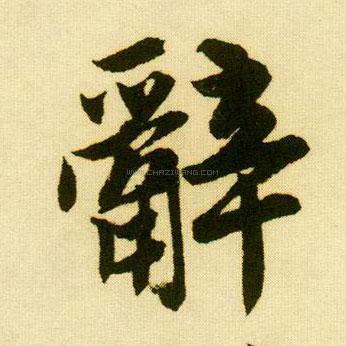 辭
WWW.CHAZIWANG.COM